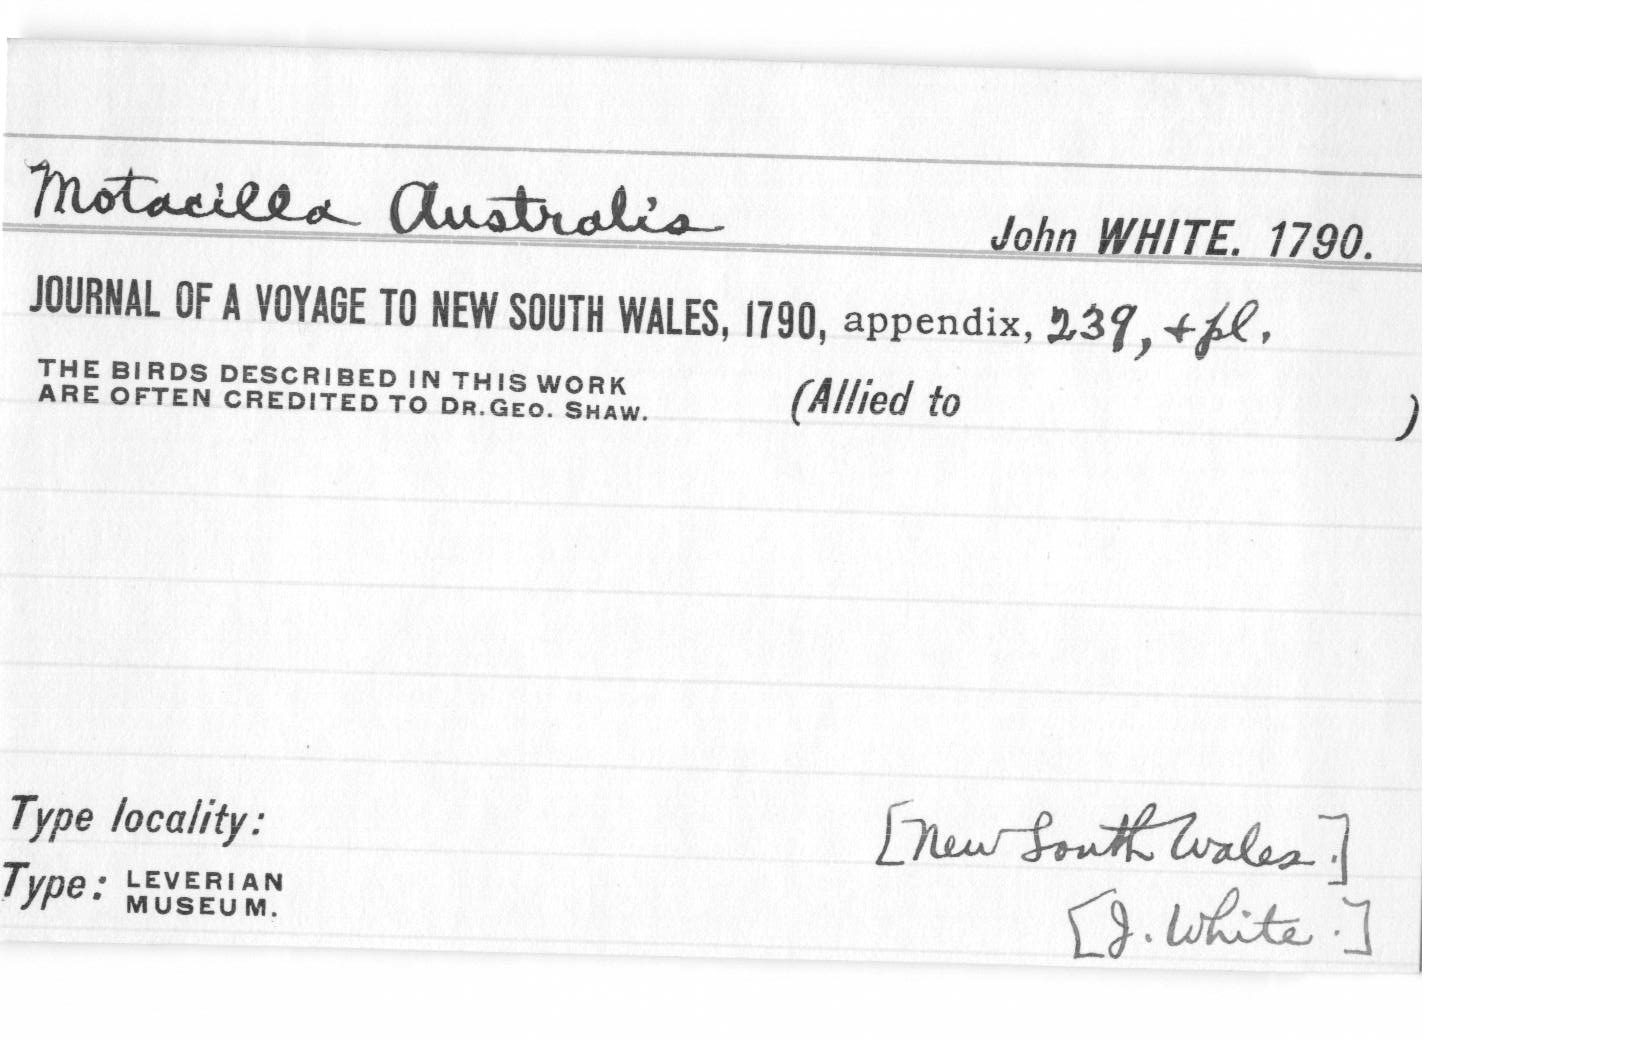 Motacilla Australis John WHITE. 1790.
JOURNAL OF A VOYAGE TO NEW SOUTH WALES, 1790, appendix, 239, + pl.
THE BIRDS DESCRIBED IN THIS WORK
ARE OFTEN CREDITED TO DR. GEO. SHAW.
(Allied to )
Type locality: [New South Wales.]
Type: LEVERIAN
MUSEUM.
[J. White.]